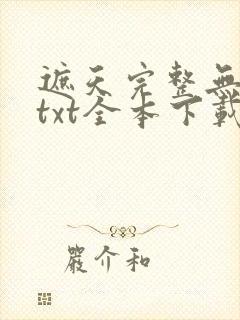 遮天完整無
txt全本下載
嚴介和